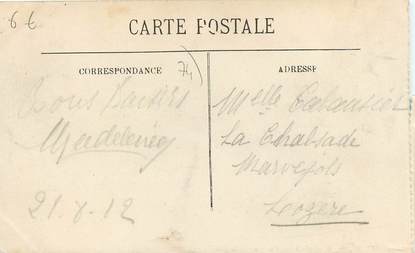 6 €
CARTE POSTALE
CORRESPONDANCE
74
ADRESSE
Bons baisers
21-8-12
Melle
La
Marvejols
Lozère